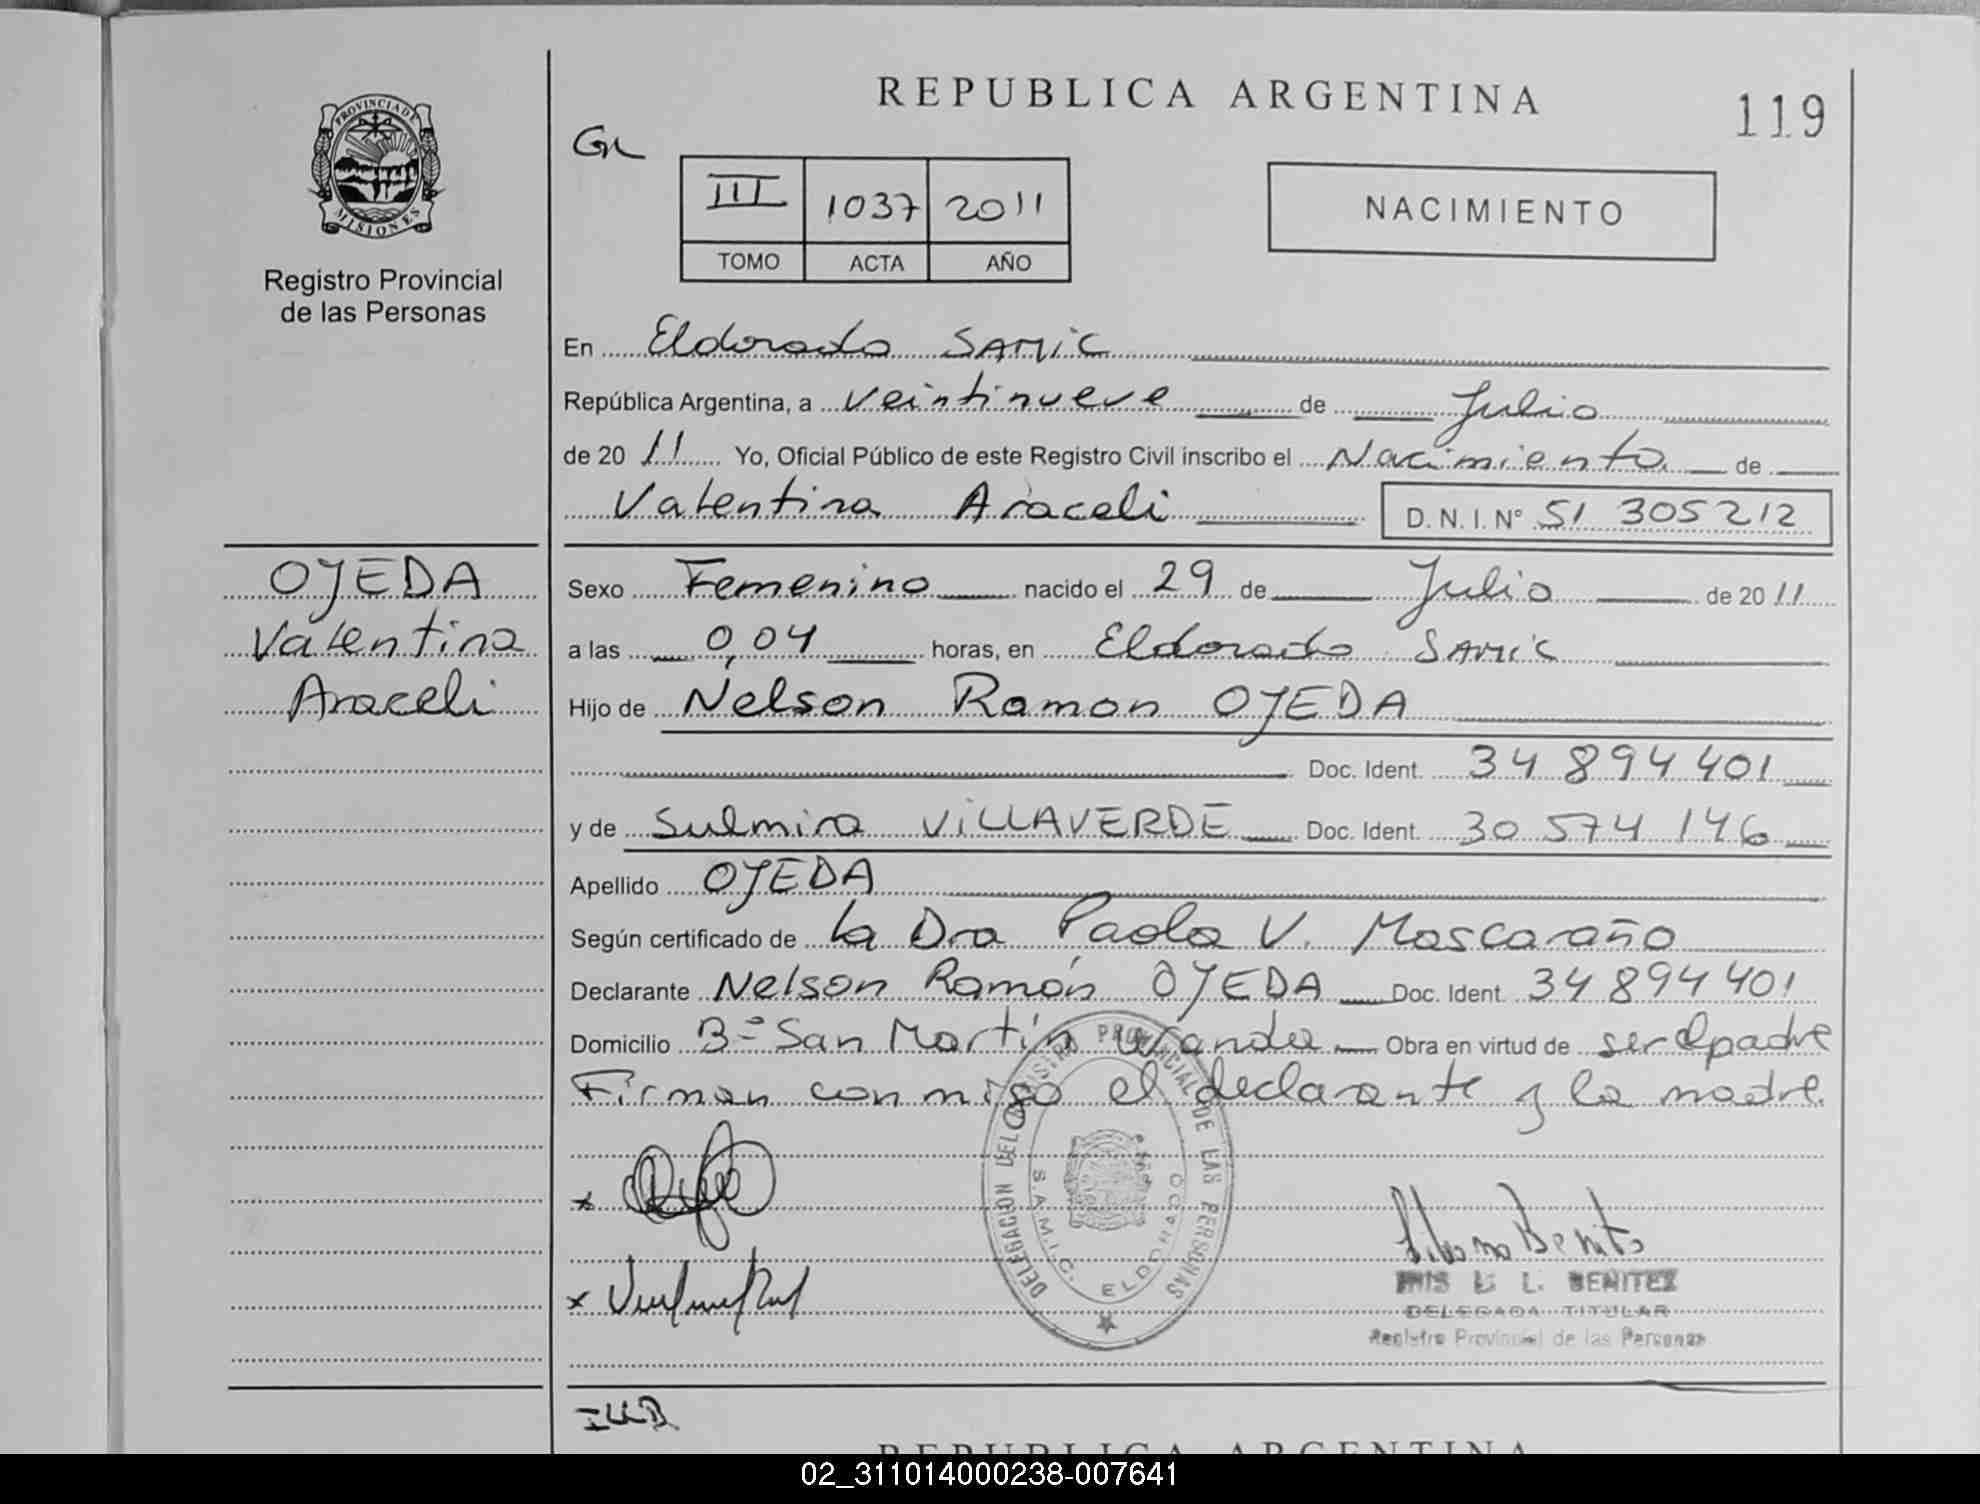 REPUBLICA ARGENTINA
119
PROVINCIA DE
MISIONES
Registro Provincial
de las Personas
III 1037 2011
TOMO ACTA AÑO
NACIMIENTO
En Eldorado SAMIC
República Argentina, a veintinueve de Julio
de 20 11 Yo, Oficial Público de este Registro Civil inscribo el Nacimiento de
Valentina Araceli D.N.I. Nº 51 305212
OJEDA
Valentina
Araceli
Sexo Femenino nacido el 29 de Julio de 20 11
a las 0,04 horas, en Eldorado SAMIC
Hijo de Nelson Ramon OJEDA
Doc. Ident. 34 894 401
y de Sulmira VILLAVERDE Doc. Ident. 30 574 146
Apellido OJEDA
Según certificado de la Dra Paola V. Moscaraño
Declarante Nelson Ramón OJEDA Doc. Ident. 34 894 401
Domicilio Bº San Martín Wanda Obra en virtud de ser el padre
Firman conmigo el declarante y la madre.
DELEGACION DEL REGISTRO PROVINCIAL DE LAS PERSONAS
S.A.M.I.C. ELDORADO
x
x
L. BENITEZ
DELEGADA TITULAR
Registro Provincial de las Personas
REPUBLICA ARGENTINA
02_311014000238-007641